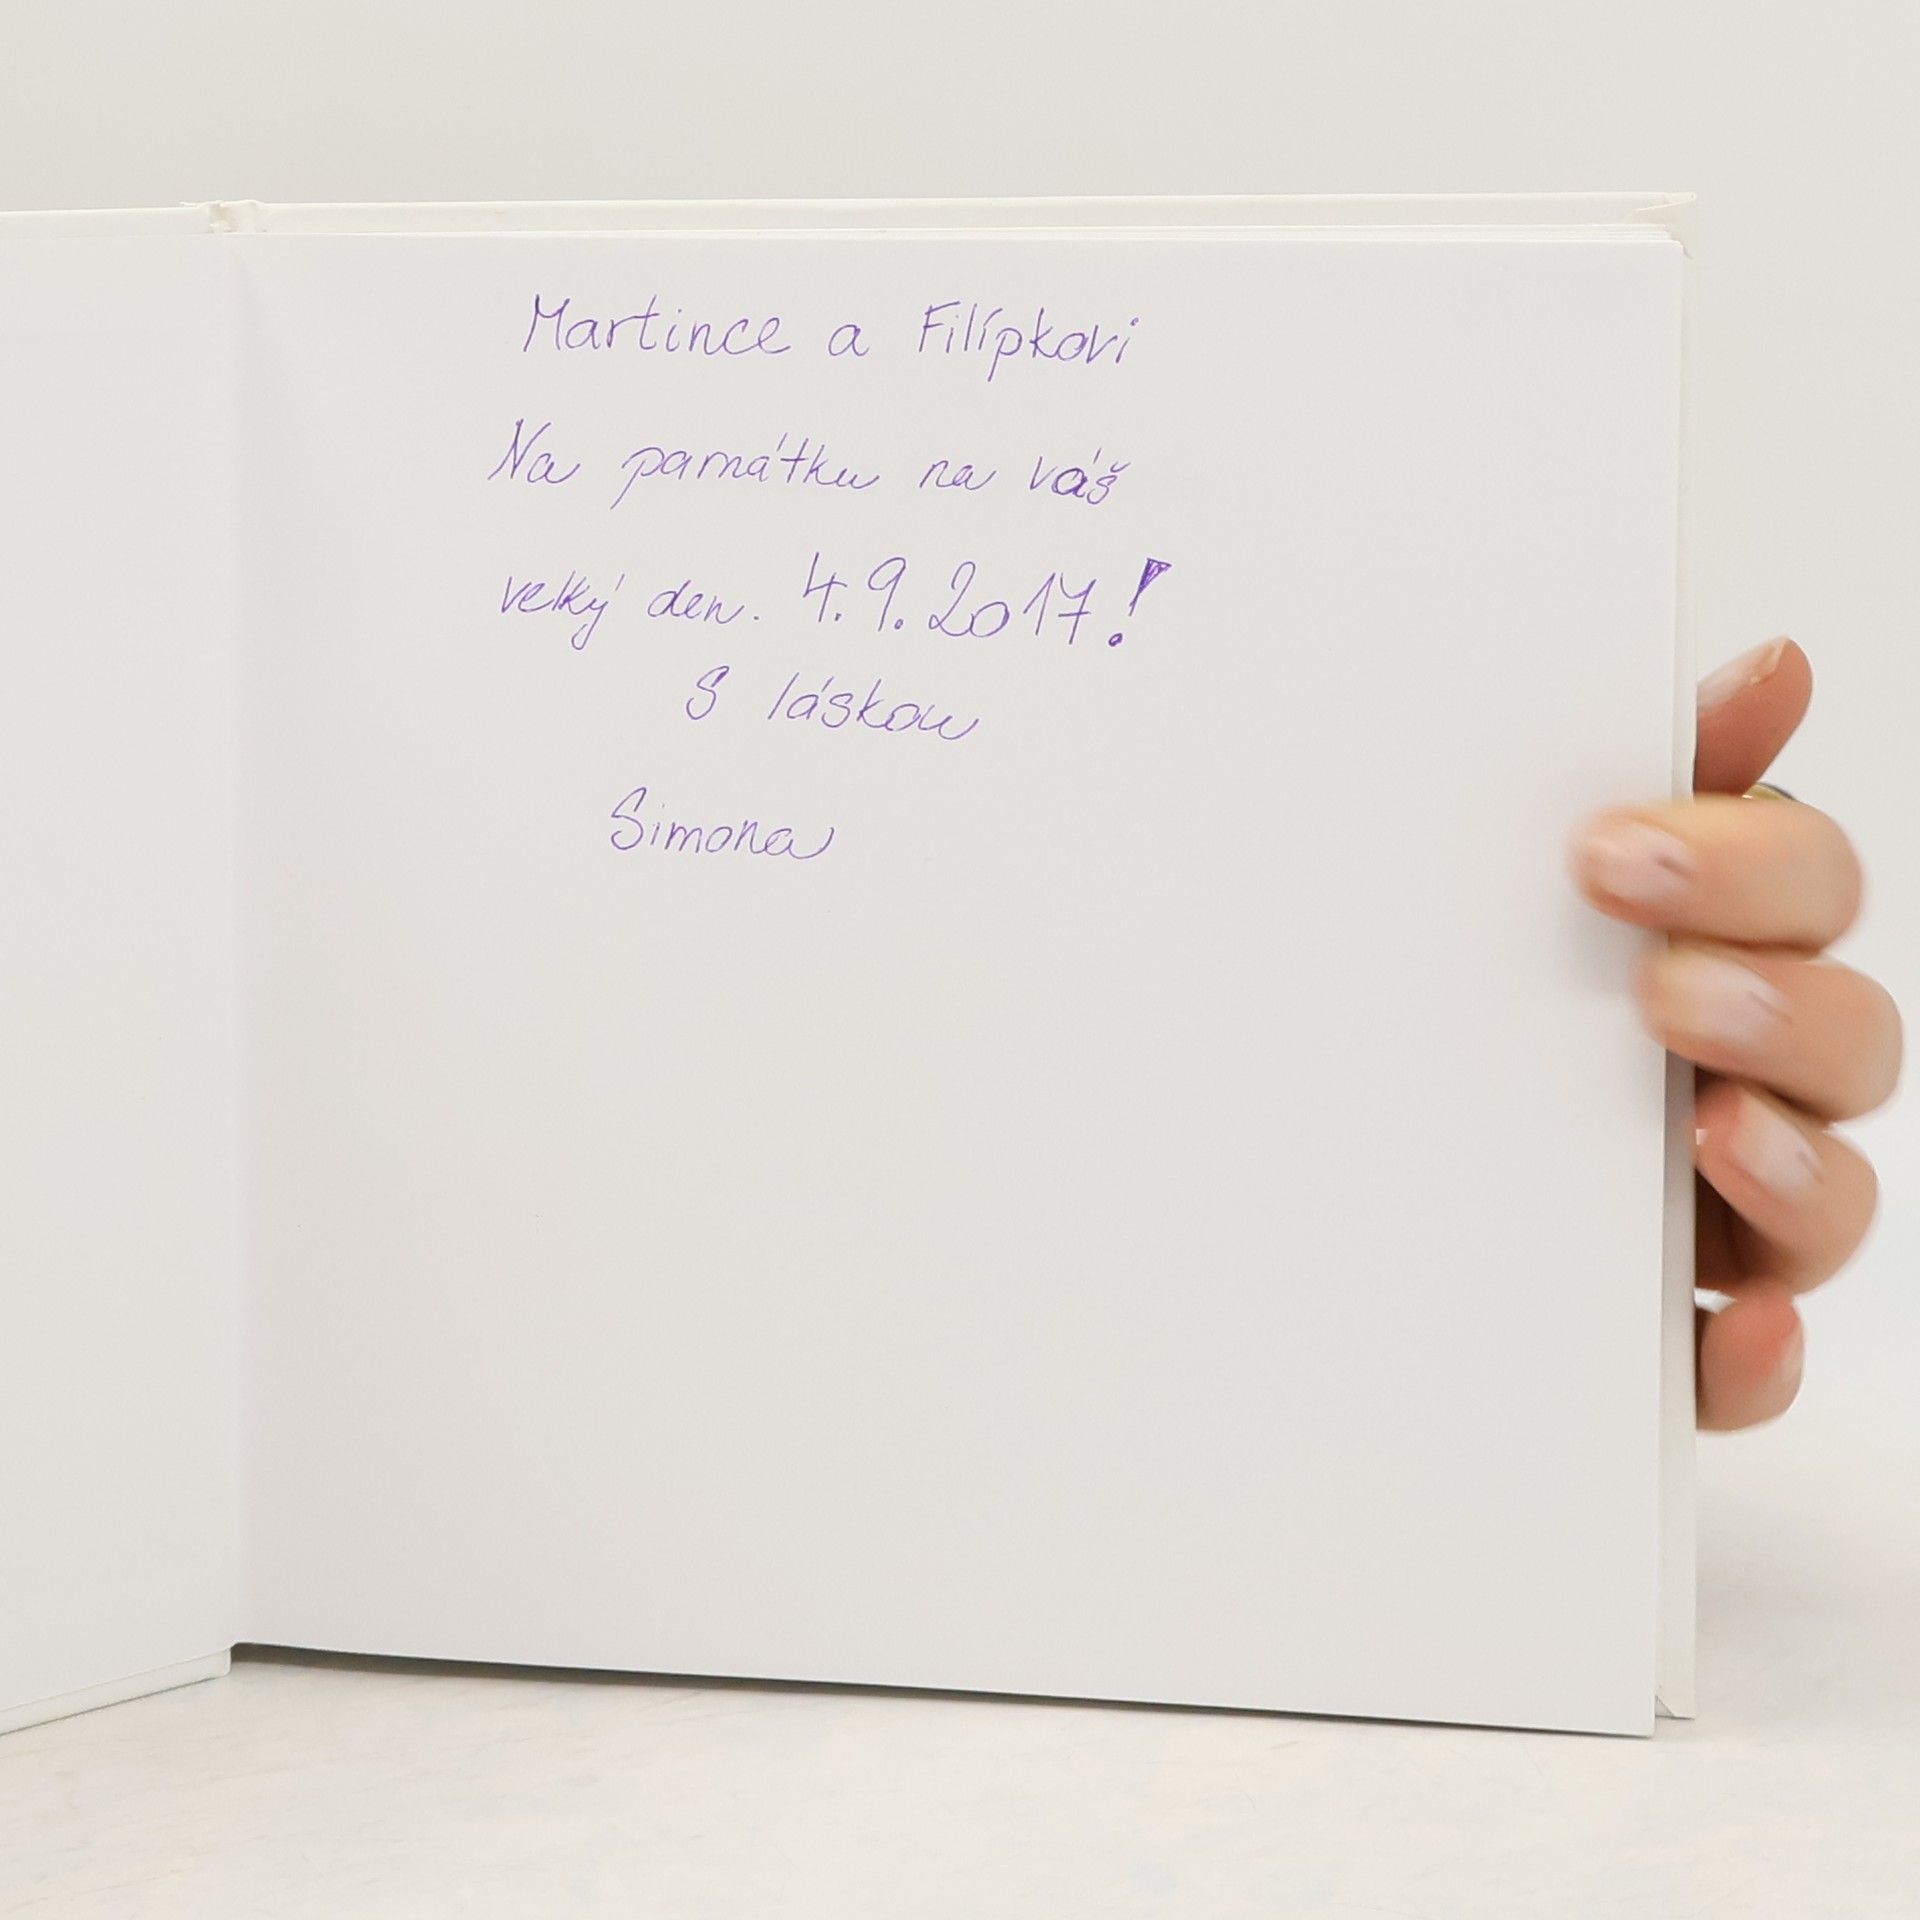 Martince a Filípkovi
Na památku na váš
velký den. 4.9.2017!
S láskou
Simona